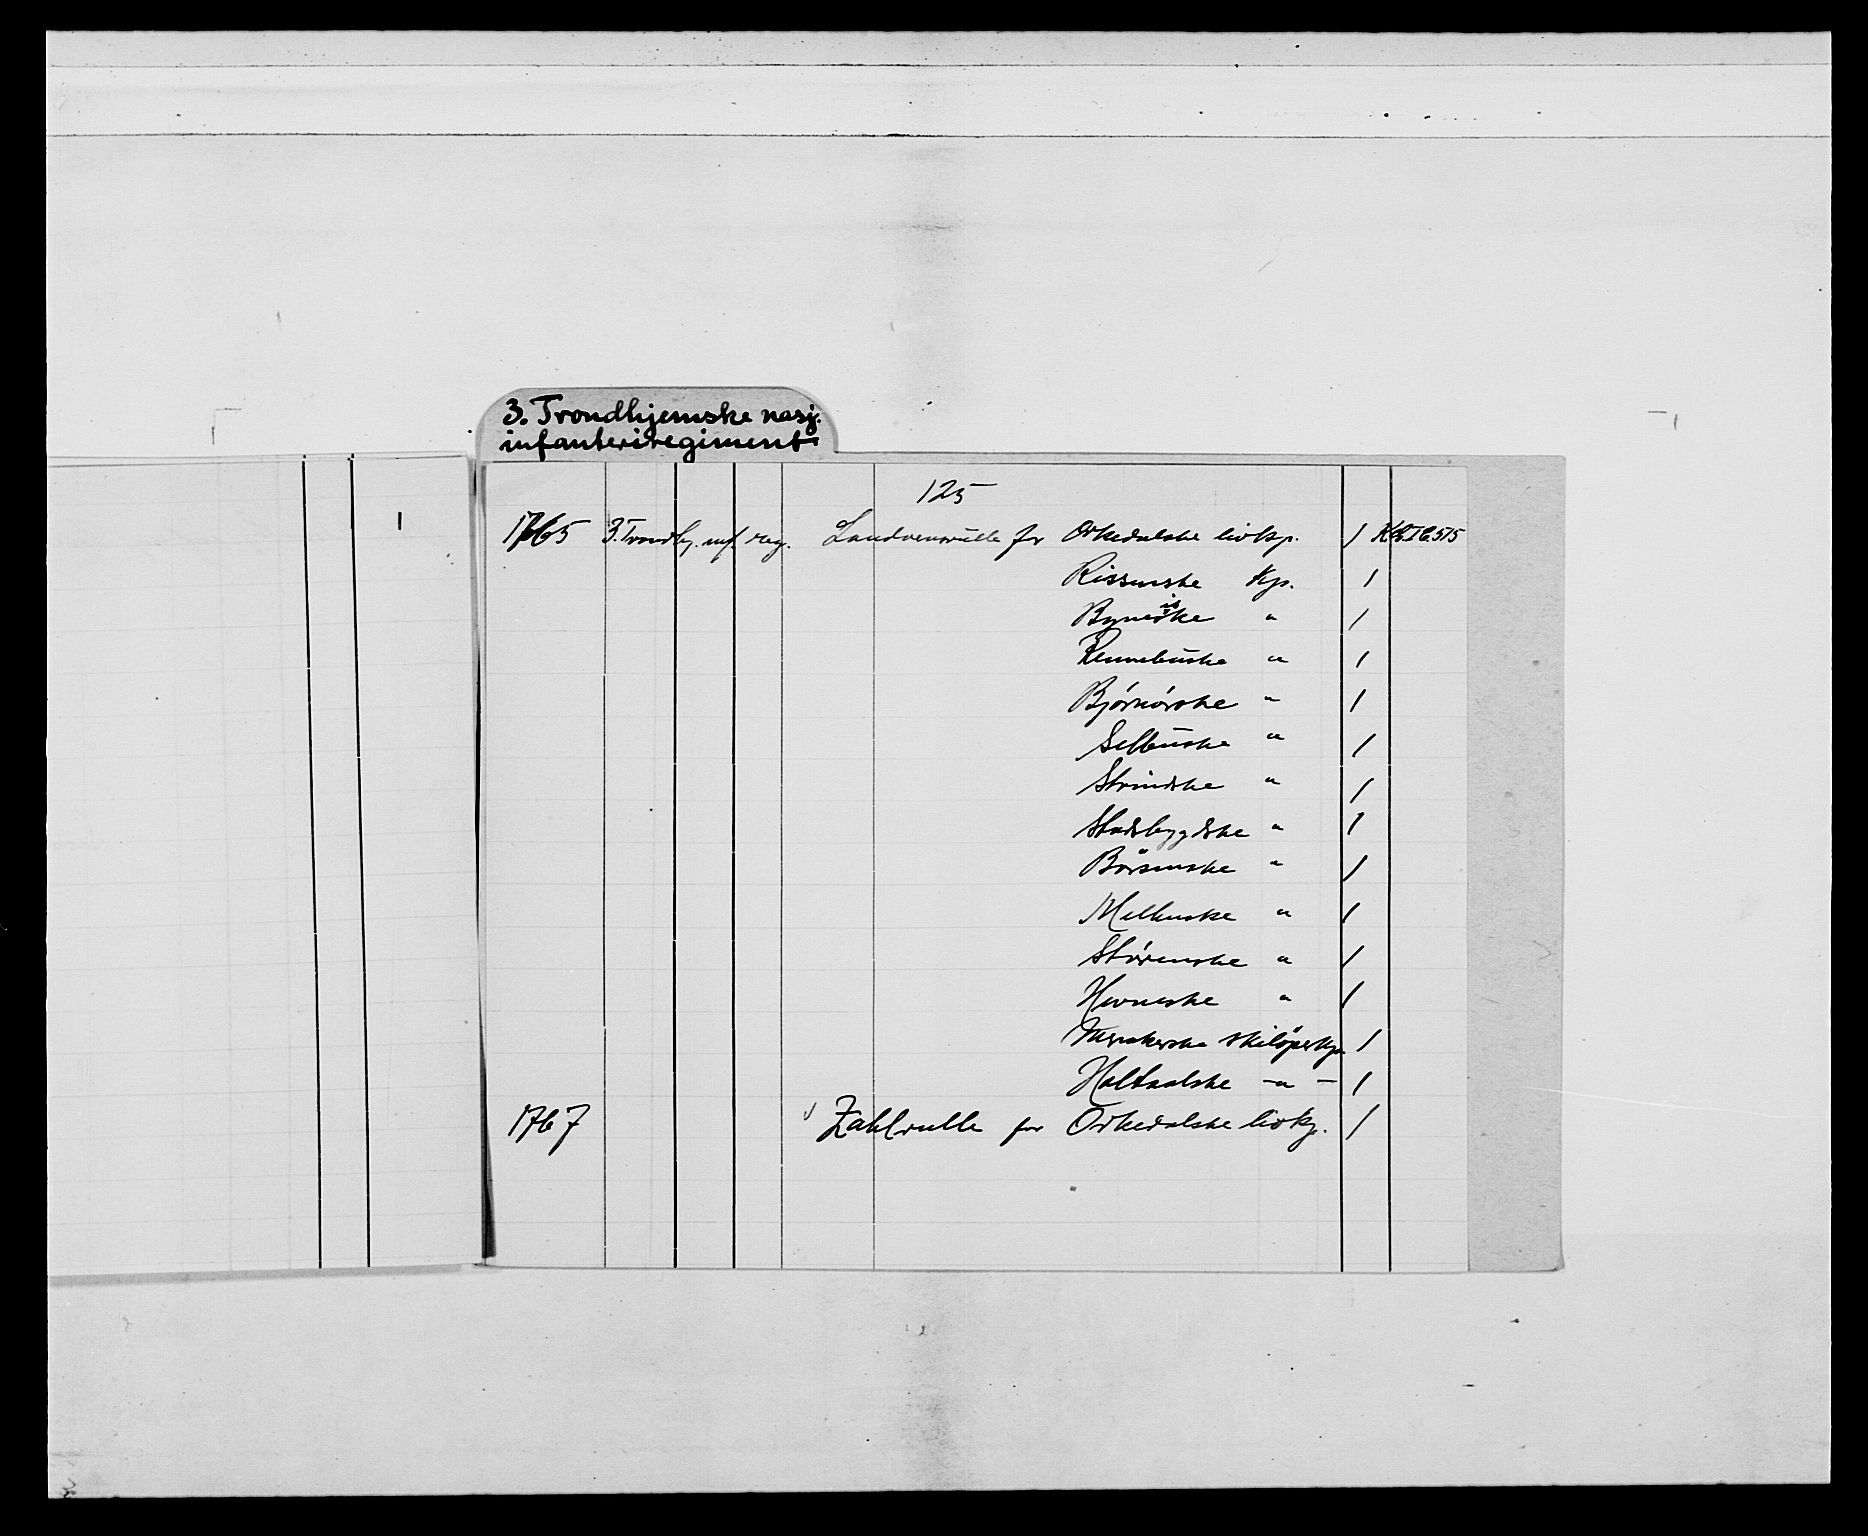 3. Trondhjemske nasj.
infanteriregiment
125
1
1765 3. Trondhj. inf. reg. Landvernrulle for Orkedalske livkp. 1
Rissenske kp. 1
Byneiske " 1
Rennebuske " 1
Bjørnørske " 1
Selbuske " 1
Strindske " 1
Stadsbygdske " 1
Börsenske " 1
Melhuske " 1
Størenske " 1
Hevneske " 1
Merakerske skilöperkp. 1
Holtaalske -"- 1
1767 Zahlrulle for Orkedalske livkp. 1